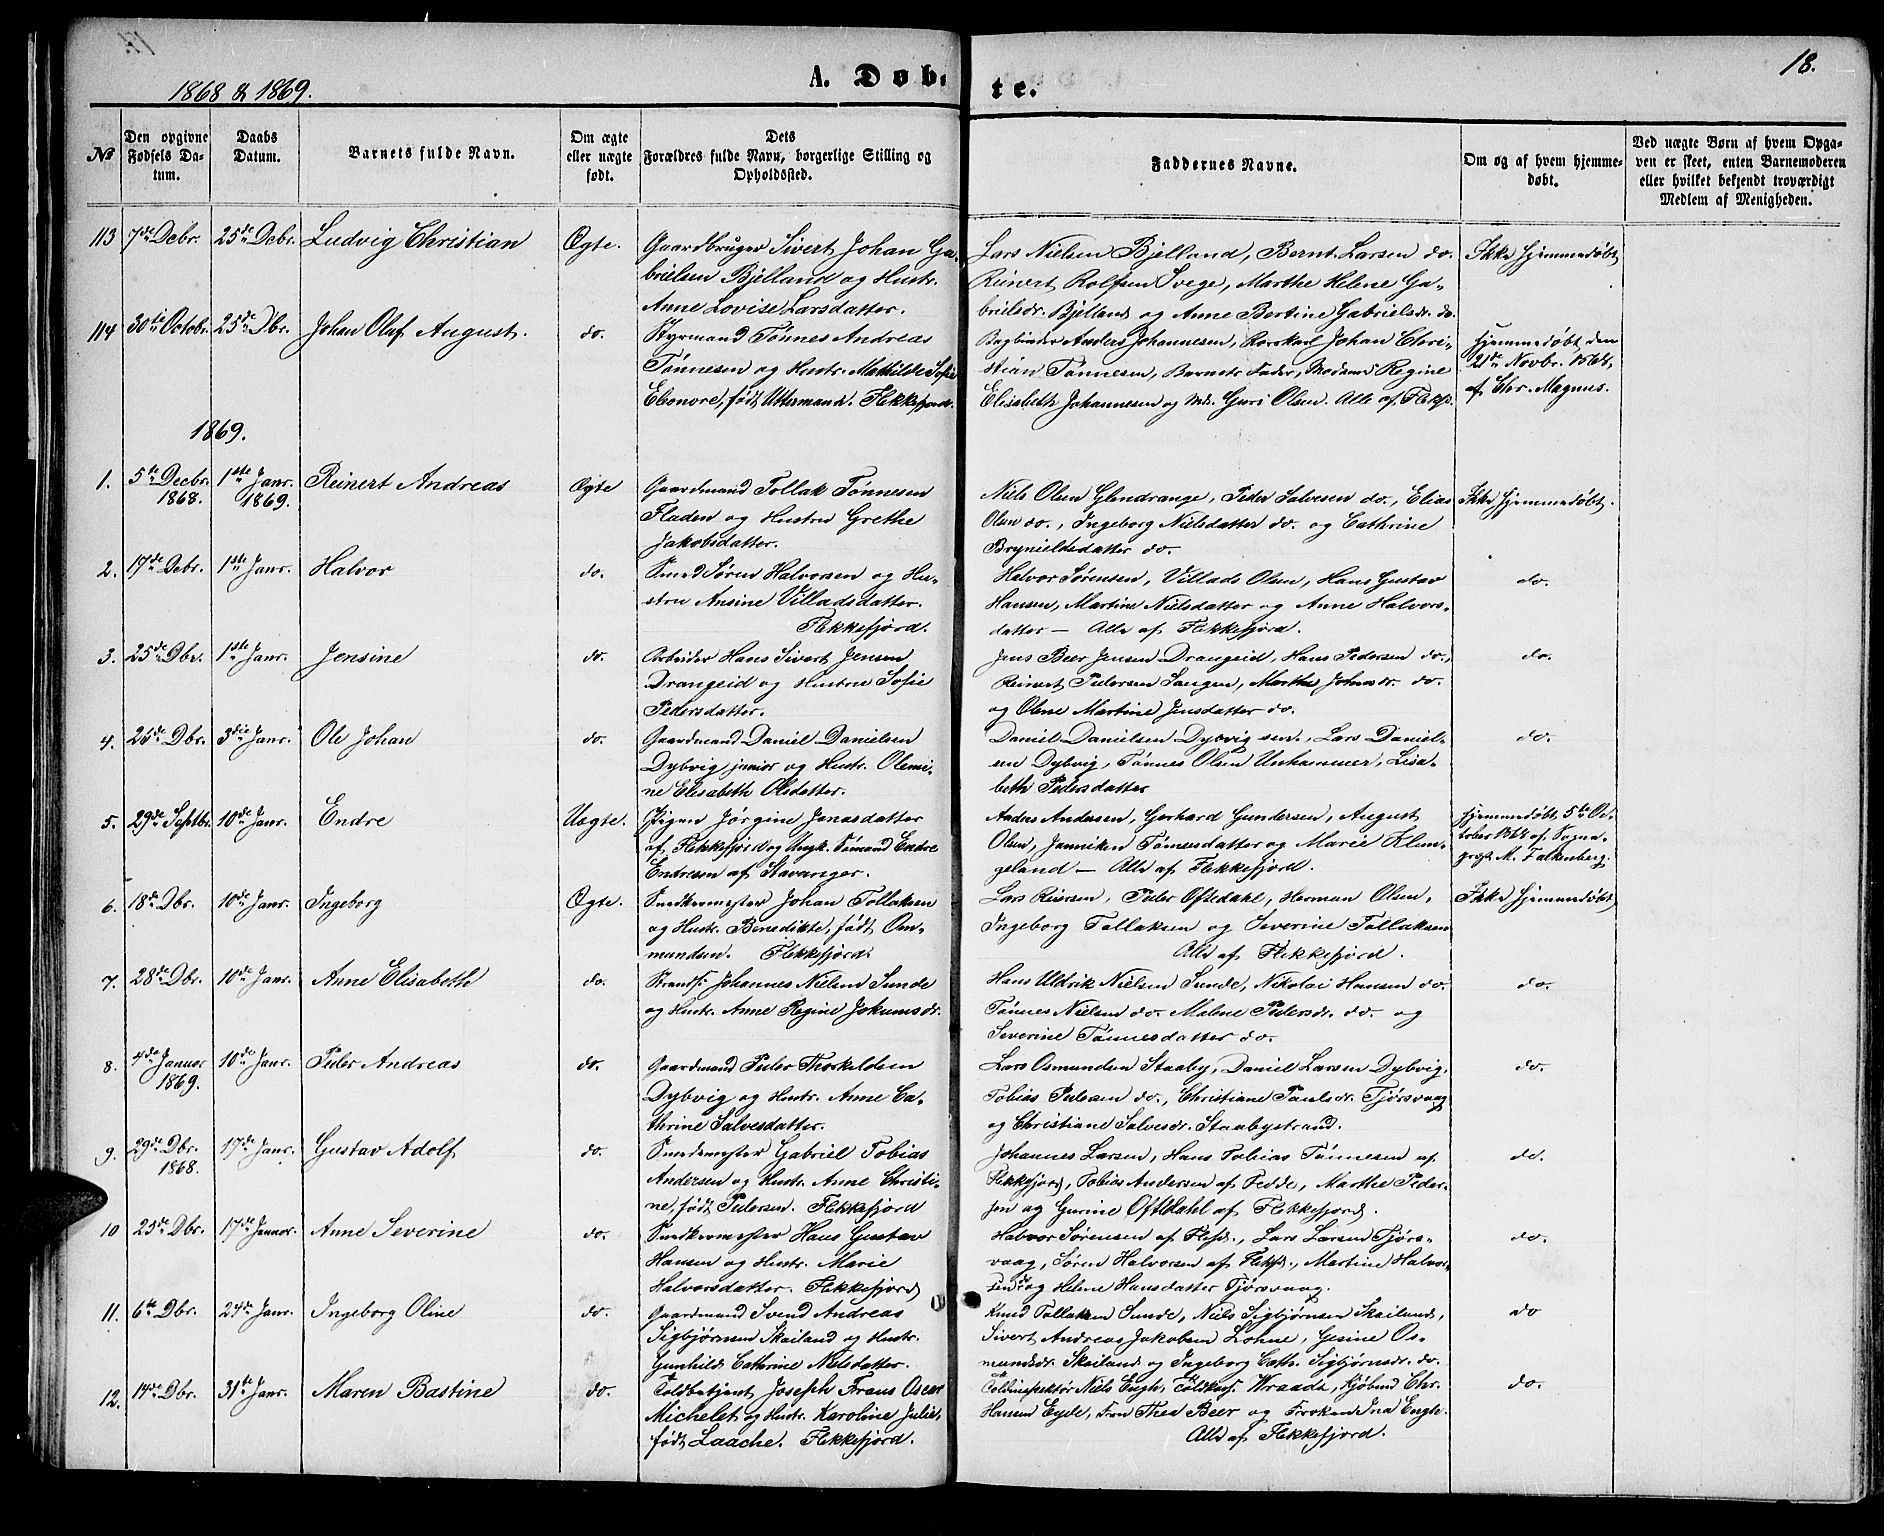 18.
1868 & 1869.
A. Døbte.
№
Den opgivne Fødsels Datum.
Daabs Datum.
Barnets fulde Navn.
Om ægte eller uægte født.
Dets Forældres fulde Navn, borgerlige Stilling og Opholdssted.
Faddernes Navne.
Om og af hvem hjemmedøbt.
Ved uægte Børn af hvem Opgaven er skeet, enten Barnemoderen eller hvilket bekjendt troværdigt Medlem af Menigheden.
113 7de Debr. 25de Debr. Ludvig Christian Ægte.
Gaardbruger Sivert Johan Ga-
brielsen Bjelland og Hustr.
Anne Lovise Larsdatter.
Lars Nielsen Bjelland, Bernt Larsen do.
Reinert Rolfsen Svege, Marthe Helene Ga-
brielsdr. Bjelland og Anne Bertine Gabrielsdr. do.
Ikke hjemmedøbt
114 30te Octobr. 25de Dbr. Johan Oluf August. do.
Styrmand Tønnes Andreas
Tønnesen og Hustr. Mathilde Sofie
Eleonore, født Uttermand. Flekkefjord.
Bogbinder Anders Johannesen, Johan Chri-
stian Tønnesen, Barnets Fader, Madame Regine
Elisabeth Johannesen og Md. Guri Olsen. Alle af Flekfj.
Hjemmedøbt den
21de Novbr. 1868,
af Chr. Magnus.
1869.
1. 5te Decbr. 1868. 1ste Janr. 1869. Reinert Andreas Ægte
Gaardmand Tollak Tønnesen
Fladen og Hustru Grethe
Jakobsdatter.
Niels Olsen Glendrange, Peder Salvesen do., Elias
Olsen do., Ingeborg Nielsdatter do. og Cathrine
Brynieldsdatter do.
Ikke hjemmedøbt.
2. 17de Debr. 1ste Janr. Halvor do.
Smed Søren Halvorsen og Hu-
stru Ansine Villadsdatter.
Flekkefjord.
Halvor Sørensen, Villads Olsen, Hans Gustav
Hansen, Martine Nielsdatter og Anne Halvors-
datter — Alle af Flekkefjord.
do.
3. 25de Dbr. 1ste Janr. Jensine do.
Arbeider Hans Sivert Jensen
Drangeid og Hustru Sofie
Pedersdatter.
Jens Beer Jensen Drangeid, Hans Pedersen do.,
Reinert Pedersen Langen, Marthe Johnsdr. do.
og Olene Martine Jensdatter do.
do.
4. 25de Dbr. 3die Janr. Ole Johan do.
Gaardmand Daniel Danielsen
Dybvig junior og Hustr. Olemi-
ne Elisabeth Olsdatter.
Daniel Danielsen Dybvig sen., Lars Daniel-
sen Dybvig, Tønnes Olsen Unhammer, Lisa-
beth Pedersdatter
do.
5. 29de Septbr. 10de Janr. Endre Uægte.
Pigen Jørgine Jonasdatter
af Flekkefjord og Ungk. Sømand Endre
Endresen af Stavanger.
Anders Andersen, Gerhard Gundersen, August
Olsen, Janniken Tønnesdatter og Marie Klun-
geland — Alle af Flekkefjord.
Hjemmedøbt 5te Oc-
tober 1868 af Sogne-
præst M. Falkenberg.
6. 18de Dbr. 10de Janr. Ingeborg Ægte.
Snedkermester Johan Tollaksen
og Hustr. Benedikte, født Om-
mundsen. Flekkefjord.
Lars Reiersen, Peder Oftedahl, Herman Olsen,
Ingeborg Tollaksen og Severine Tollaksen
Alle af Flekkefjord.
Ikke hjemmedøbt
7. 28de Dbr. 10de Janr. Anne Elisabeth do.
Strandf. Johannes Nielsen Sunde
og Hustr. Anne Regine Jokumsdr.
Hans Uldrik Nielsen Sunde, Nikolai Hansen do.
Tønnes Nielsen do. Malene Pedersdr. do. og
Severine Tønnesdatter do.
do.
8. 4de Januar 1869. 10de Janr. Peder Andreas do.
Gaardmand Peder Thorkeldsen
Dybvig og Hustr. Anne Ca-
thrine Salvesdatter.
Lars Osmundsen Staaby, Daniel Larsen Dybvig,
Tobias Pedersen do., Christiane Paulsdr. Tjørsvaag
og Christiane Salvesdr. Staabystrand.
do.
9. 29de Dbr. 1868. 17de Janr. Gustav Adolf do.
Smedemester Gabriel Tobias
Andersen og Hustr. Anne Christi-
ne, født Pedersen. Flekkefjord
Johannes Larsen, Hans Tobias Tønnesen af
Flekkefjord, Tobias Andersen af Fedde, Marthe Peder-
sen og Gurine Oftedahl af Flekkefjord.
do.
10 25de Dbr. 17de Januar. Anne Severine do.
Snedkermester Hans Gustav
Hansen og Hustr. Marie
Halvorsdatter. Flekkefjord
Halvor Sørensen af Flefj., Lars Larsen Tjørs-
vaag, Søren Halvorsen af Flekfj., Martine Halvor-
sen do og Helene Hansdatter Tjørsvaag.
do.
11. 6te Dbr. 24de Janr. Ingeborg Oline do.
Gaardmand Svend Andreas
Sigbjørnsen Skailand og Hustr.
Gunhild Cathrine Nielsdatter.
Knud Tollaksen Sunde, Niels Sigbjørnsen Skailand,
Sivert Andreas Jakobsen Lohne, Gesine Os-
mundsdr. Skailand og Ingeborg Cath. Sigbjørnsdr. do.
do
12. 14de Dbr. 31te Janr. Maren Bastine do.
Toldbetjent Joseph Frans Oscar
Michelet og Hustr. Karoline Julie,
født Laache. Flekkefjord.
Toldinspektør Niels Engh, Toldkas. Wraadt, Kjøbmd Chr.
Hansen Eyde, Fru Thea Beer og Frøken Ina Engh.
Alle af Flekkefjord.
do.